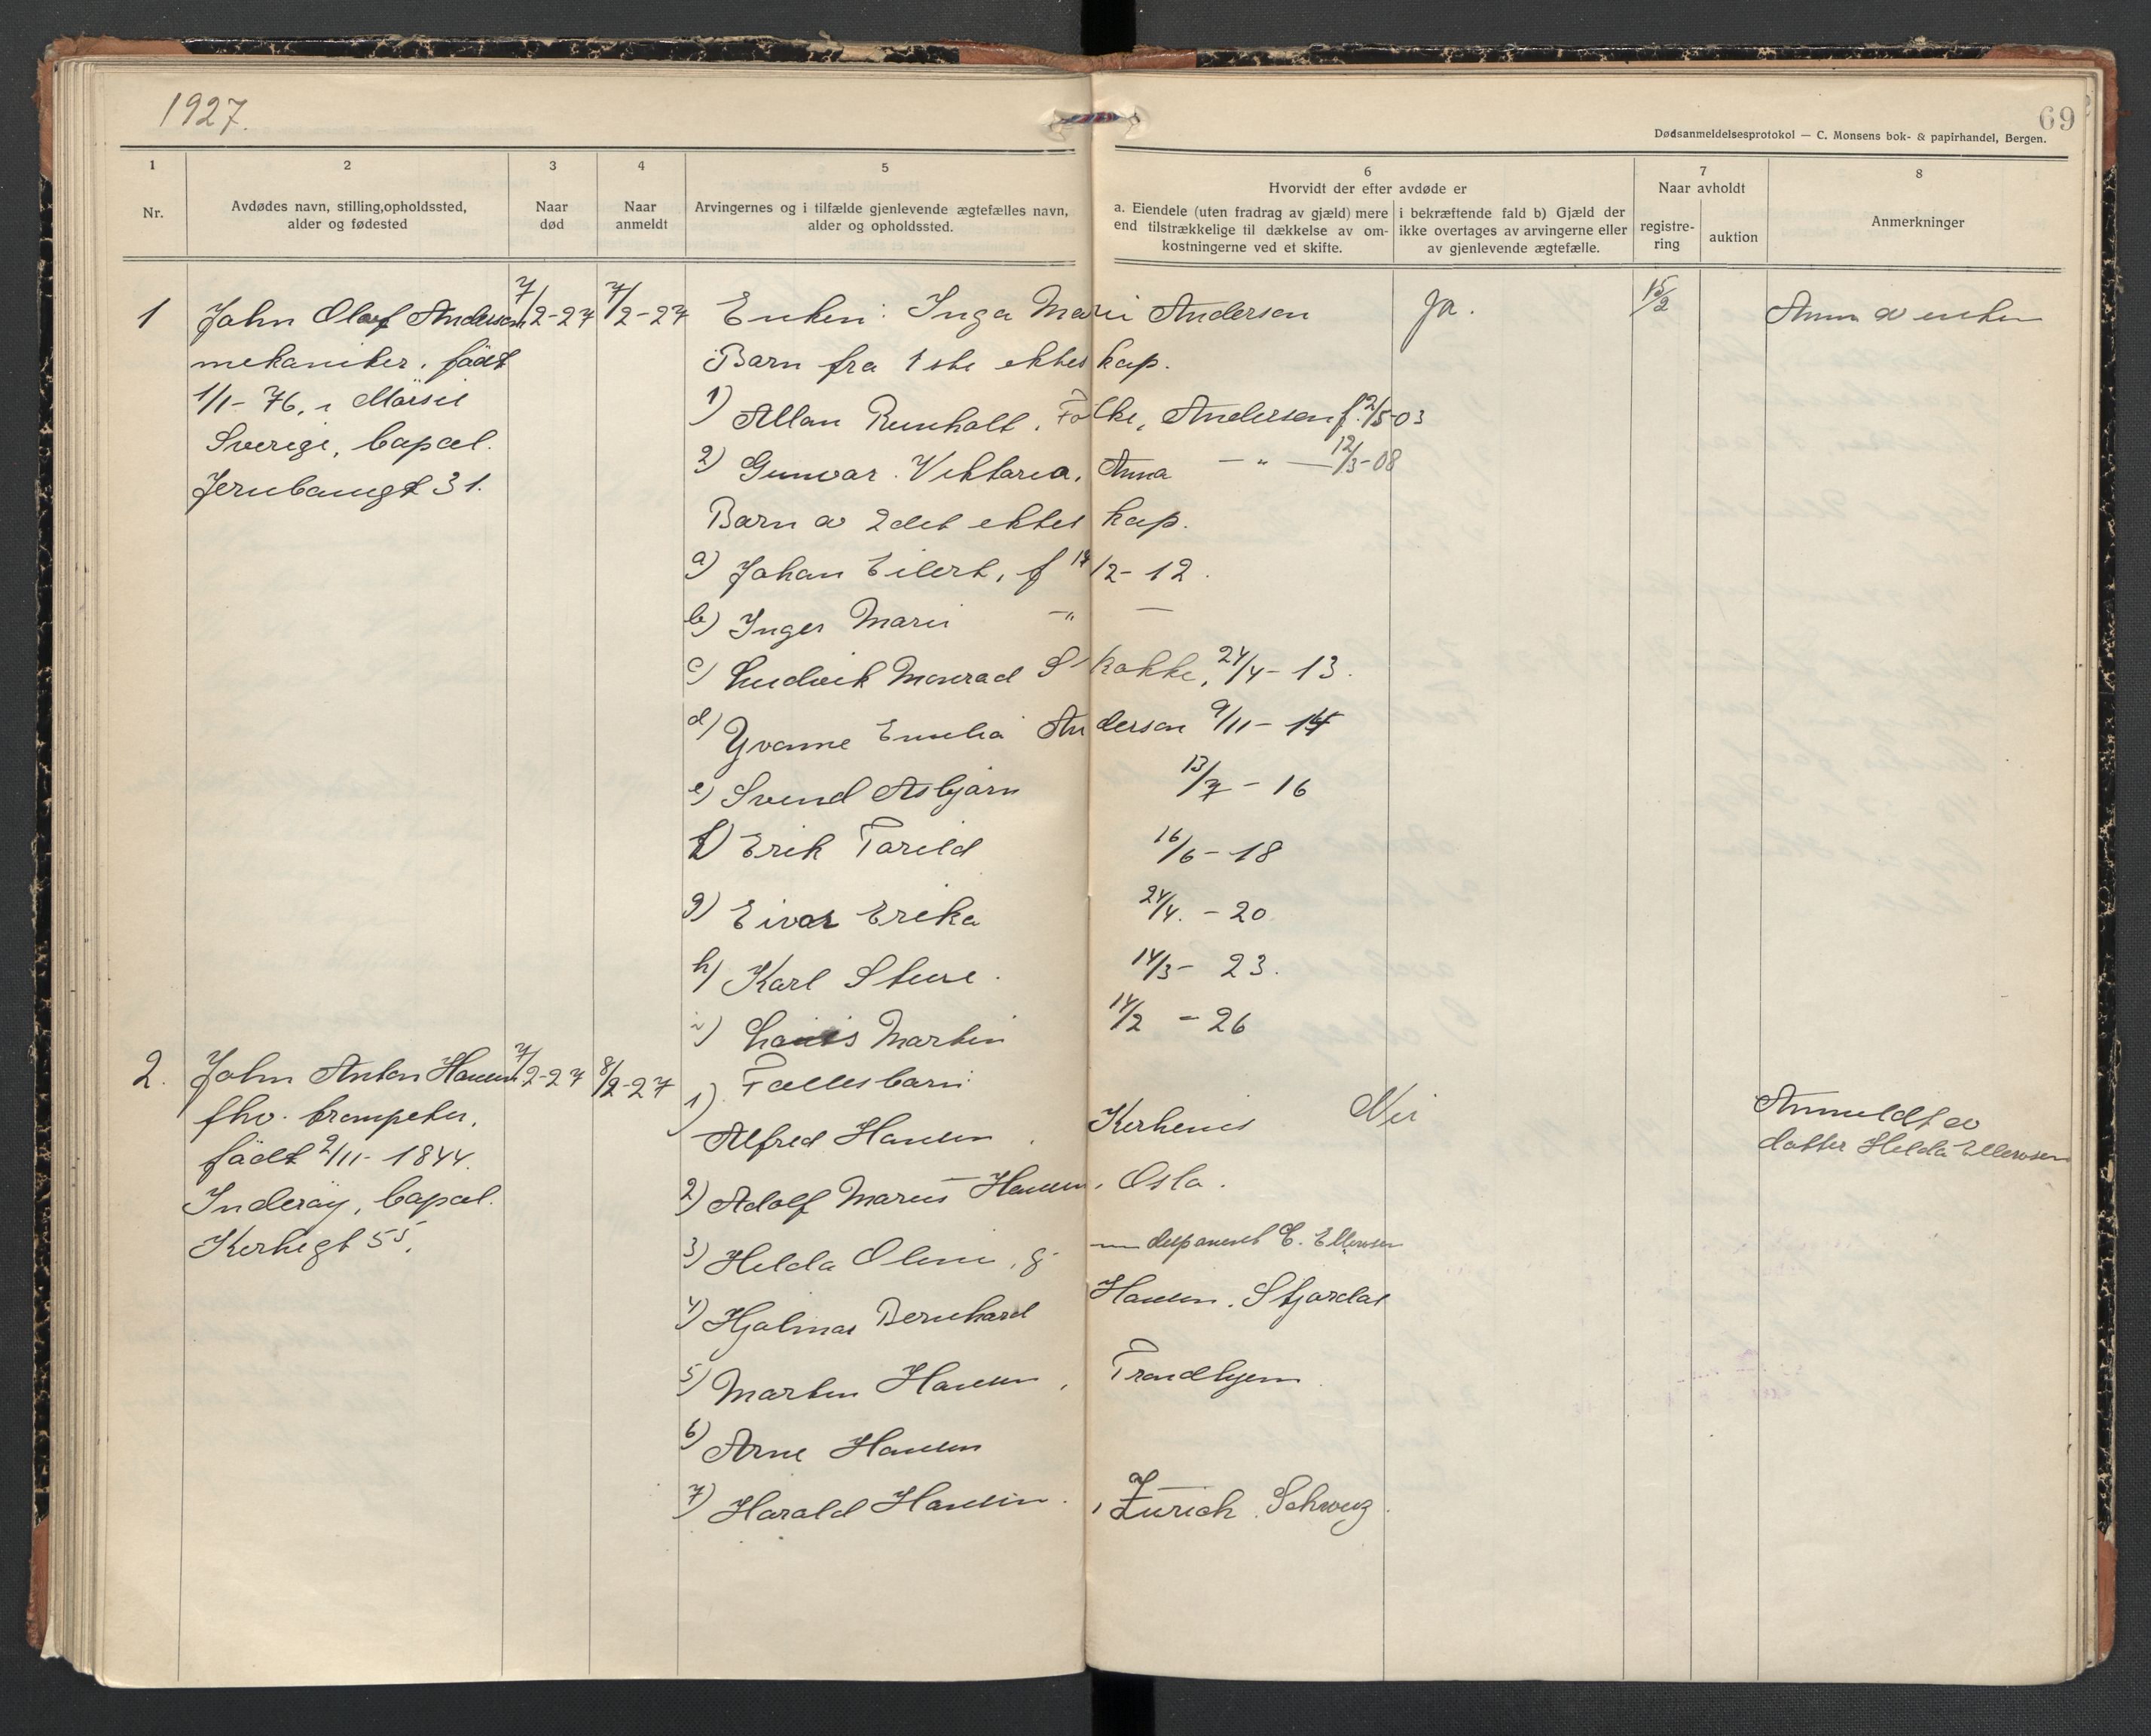 1927.
69
Dødsanmeldelsesprotokol — C. Monsens bok- & papirhandel, Bergen.
1 2 3 4 5 6 7 8
Nr.
Avdødes navn, stilling, opholdssted,
alder og fødested
Naar
død
Naar
anmeldt
Arvingernes og i tilfælde gjenlevende ægtefælles navn,
alder og opholdssted.
Hvorvidt der efter avdøde er
a. Eiendele (uten fradrag av gjæld) mere
end tilstrækkelige til dækkelse av om-
kostningerne ved et skifte.
i bekræftende fald b) Gjæld der
ikke overtages av arvingerne eller
av gjenlevende ægtefælle.
Naar avholdt
registre-
ring
auktion
Anmerkninger
1 John Olaf Andersen 7/2-27 7/2-27 Enken: Inga Marie Andersen Ja. 15/2 Anm av enken
mekaniker, født
1/1-76, i
Sverige, bopæl.
Jernbanegt 31.
Barn fra 1ste ekteskap.
1) Allan Reinholt, Folke, Andersen f. 2/5-03
2) Gunvor. Viktoria, Anna — " — 12/3-08
Barn av 2det ekteskap.
a) Johan Eilert, f 17/2-12.
b) Inger Marie — " —
c) Ludvik Monrad Skokke, 24/4-13.
d) Yvonne Emelia Andersen 9/11-14
e) Svend Asbjørn 13/7-16
f) Erik Torild 16/6-18
g) Eivor Erika 24/4.-20
h) Karl Sture. 14/3-23.
i) Louis Martin 14/2-26
2. John Anton Hansen 7/2-27 8/2-27 Fællesbarn:
fhv. trompeter,
født 2/11-1844.
Inderøy, bopæl.
Kirkegt 55.
1) Alfred Hansen. Kirkenes Nei Anmeldt av
datter Helda Ellevsen
2) Adolf Marius Hansen, Oslo.
3) Helda Oline, g. disponent E. Ellevsen
4) Hjalmar Bernhard Hansen, Stjørdal
5) Martin Hansen, Trondhjem.
6) Arne Hansen
7) Harald Hansen, Zürich. Schweiz.